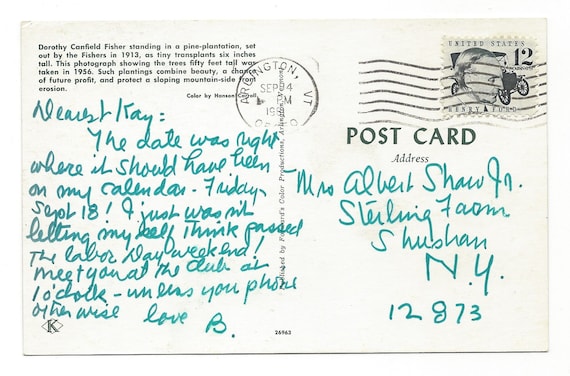 Dorothy Canfield Fisher standing in a pine-plantation, set
out by the Fishers in 1913, as tiny transplants six inches
tall. This photograph showing the trees fifty feet tall was
taken in 1956. Such plantings combine beauty, a chance
of future profit, and protect a sloping mountain-side from
erosion.
Color by Hanson Carroll
ARLINGTON, VT
SEP 4
PM
UNITED STATES
12
HENRY FORD
POST CARD
Address
Dearest Kay:
The date was right
where it should have been
on my calendar - Friday
Sept 18! I just wasn't
letting my self think passed
the Labor Day weekend!
Meet you at the club at
1 o'clock - unless you phone
otherwise love B.
Mrs Albert Shaw Jr.
Sterling Farm
Shushan
N.Y.
12873
Published by Forward's Color Productions, Arlington, Vermont
K
26963